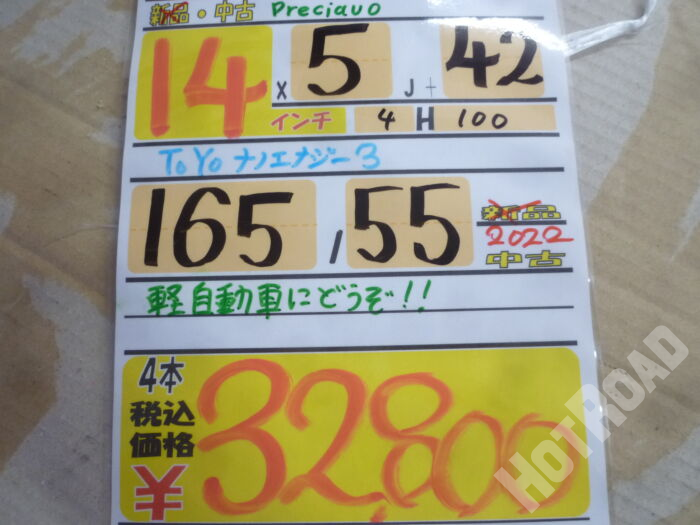 新品・中古 Preciavo
14 インチ x 5 J + 42
4 H 100
ToYo ナノエナジー3
165 / 55 新品 2022 中古
軽自動車にどうぞ!!
4本税込価格 ¥32,800
HOTROAD